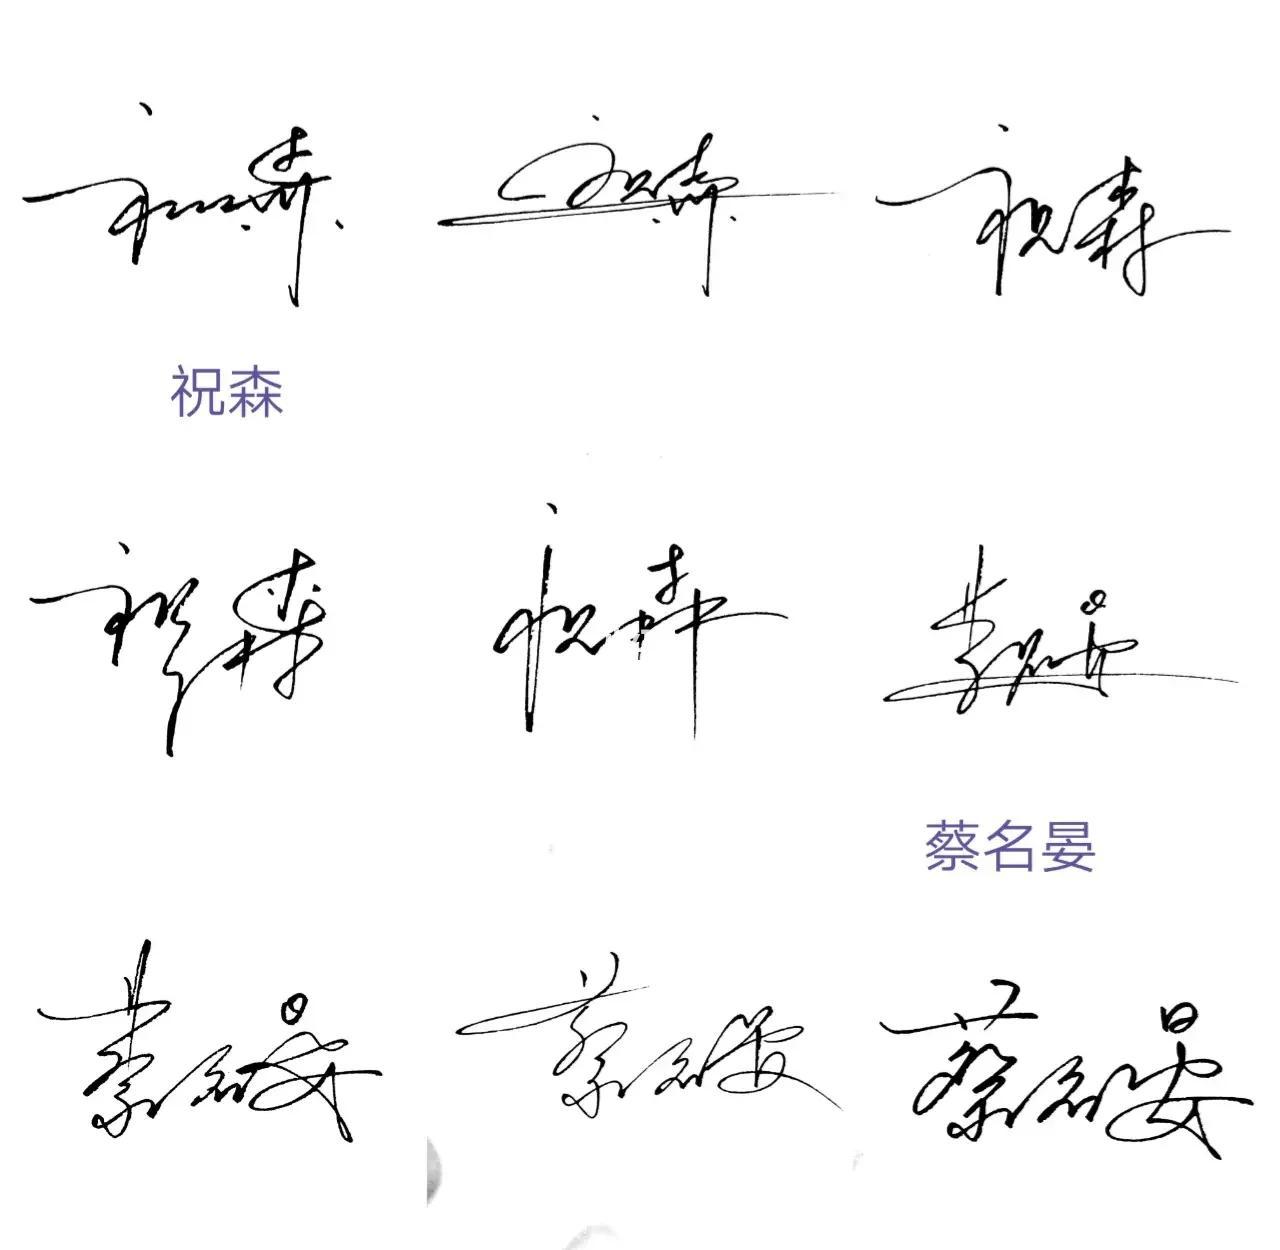 祝森 祝森 祝森
祝森
祝森 祝森 蔡名晏
蔡名晏
蔡名晏 蔡名晏 蔡名晏